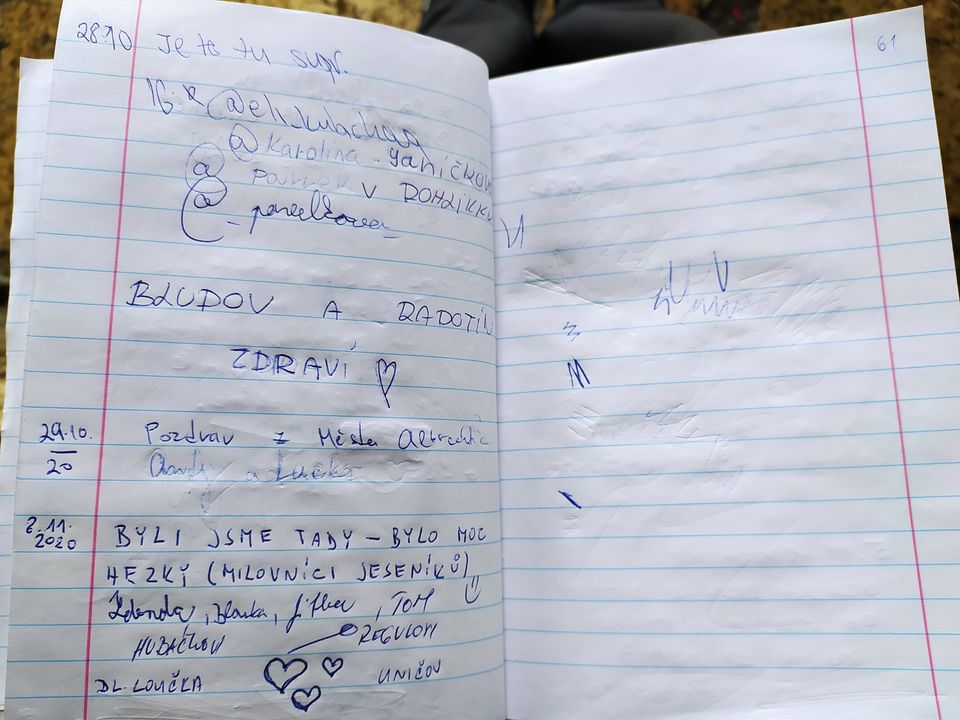 28.10 Je to tu supr.
IG:
@karolina.janičkov
@ V ROHLIKKU
@
BLUDOV A RADOTÍN
ZDRAVÍ
29.10. Pozdrav z Města Albrechtic
20 a Lucka
8.11. BYLI JSME TADY – BYLO MOC
2020
HEZKÝ (MILOVNÍCI JESENÍKŮ)
Zdenda, Blanka, Jitka, TOM
HUBÁČKOVI
DL. LOUČKA UNIČOV
61